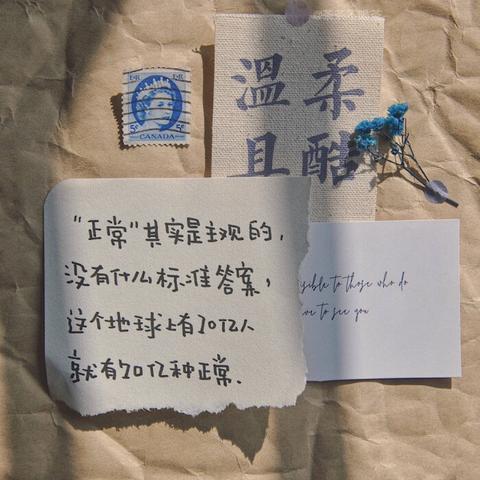 溫柔
且酷
CANADA
5¢ 5¢
"正常"其实是主观的，
没有什么标准答案，
这个地球上有70亿人
就有70亿种正常.
to those who do
to see you